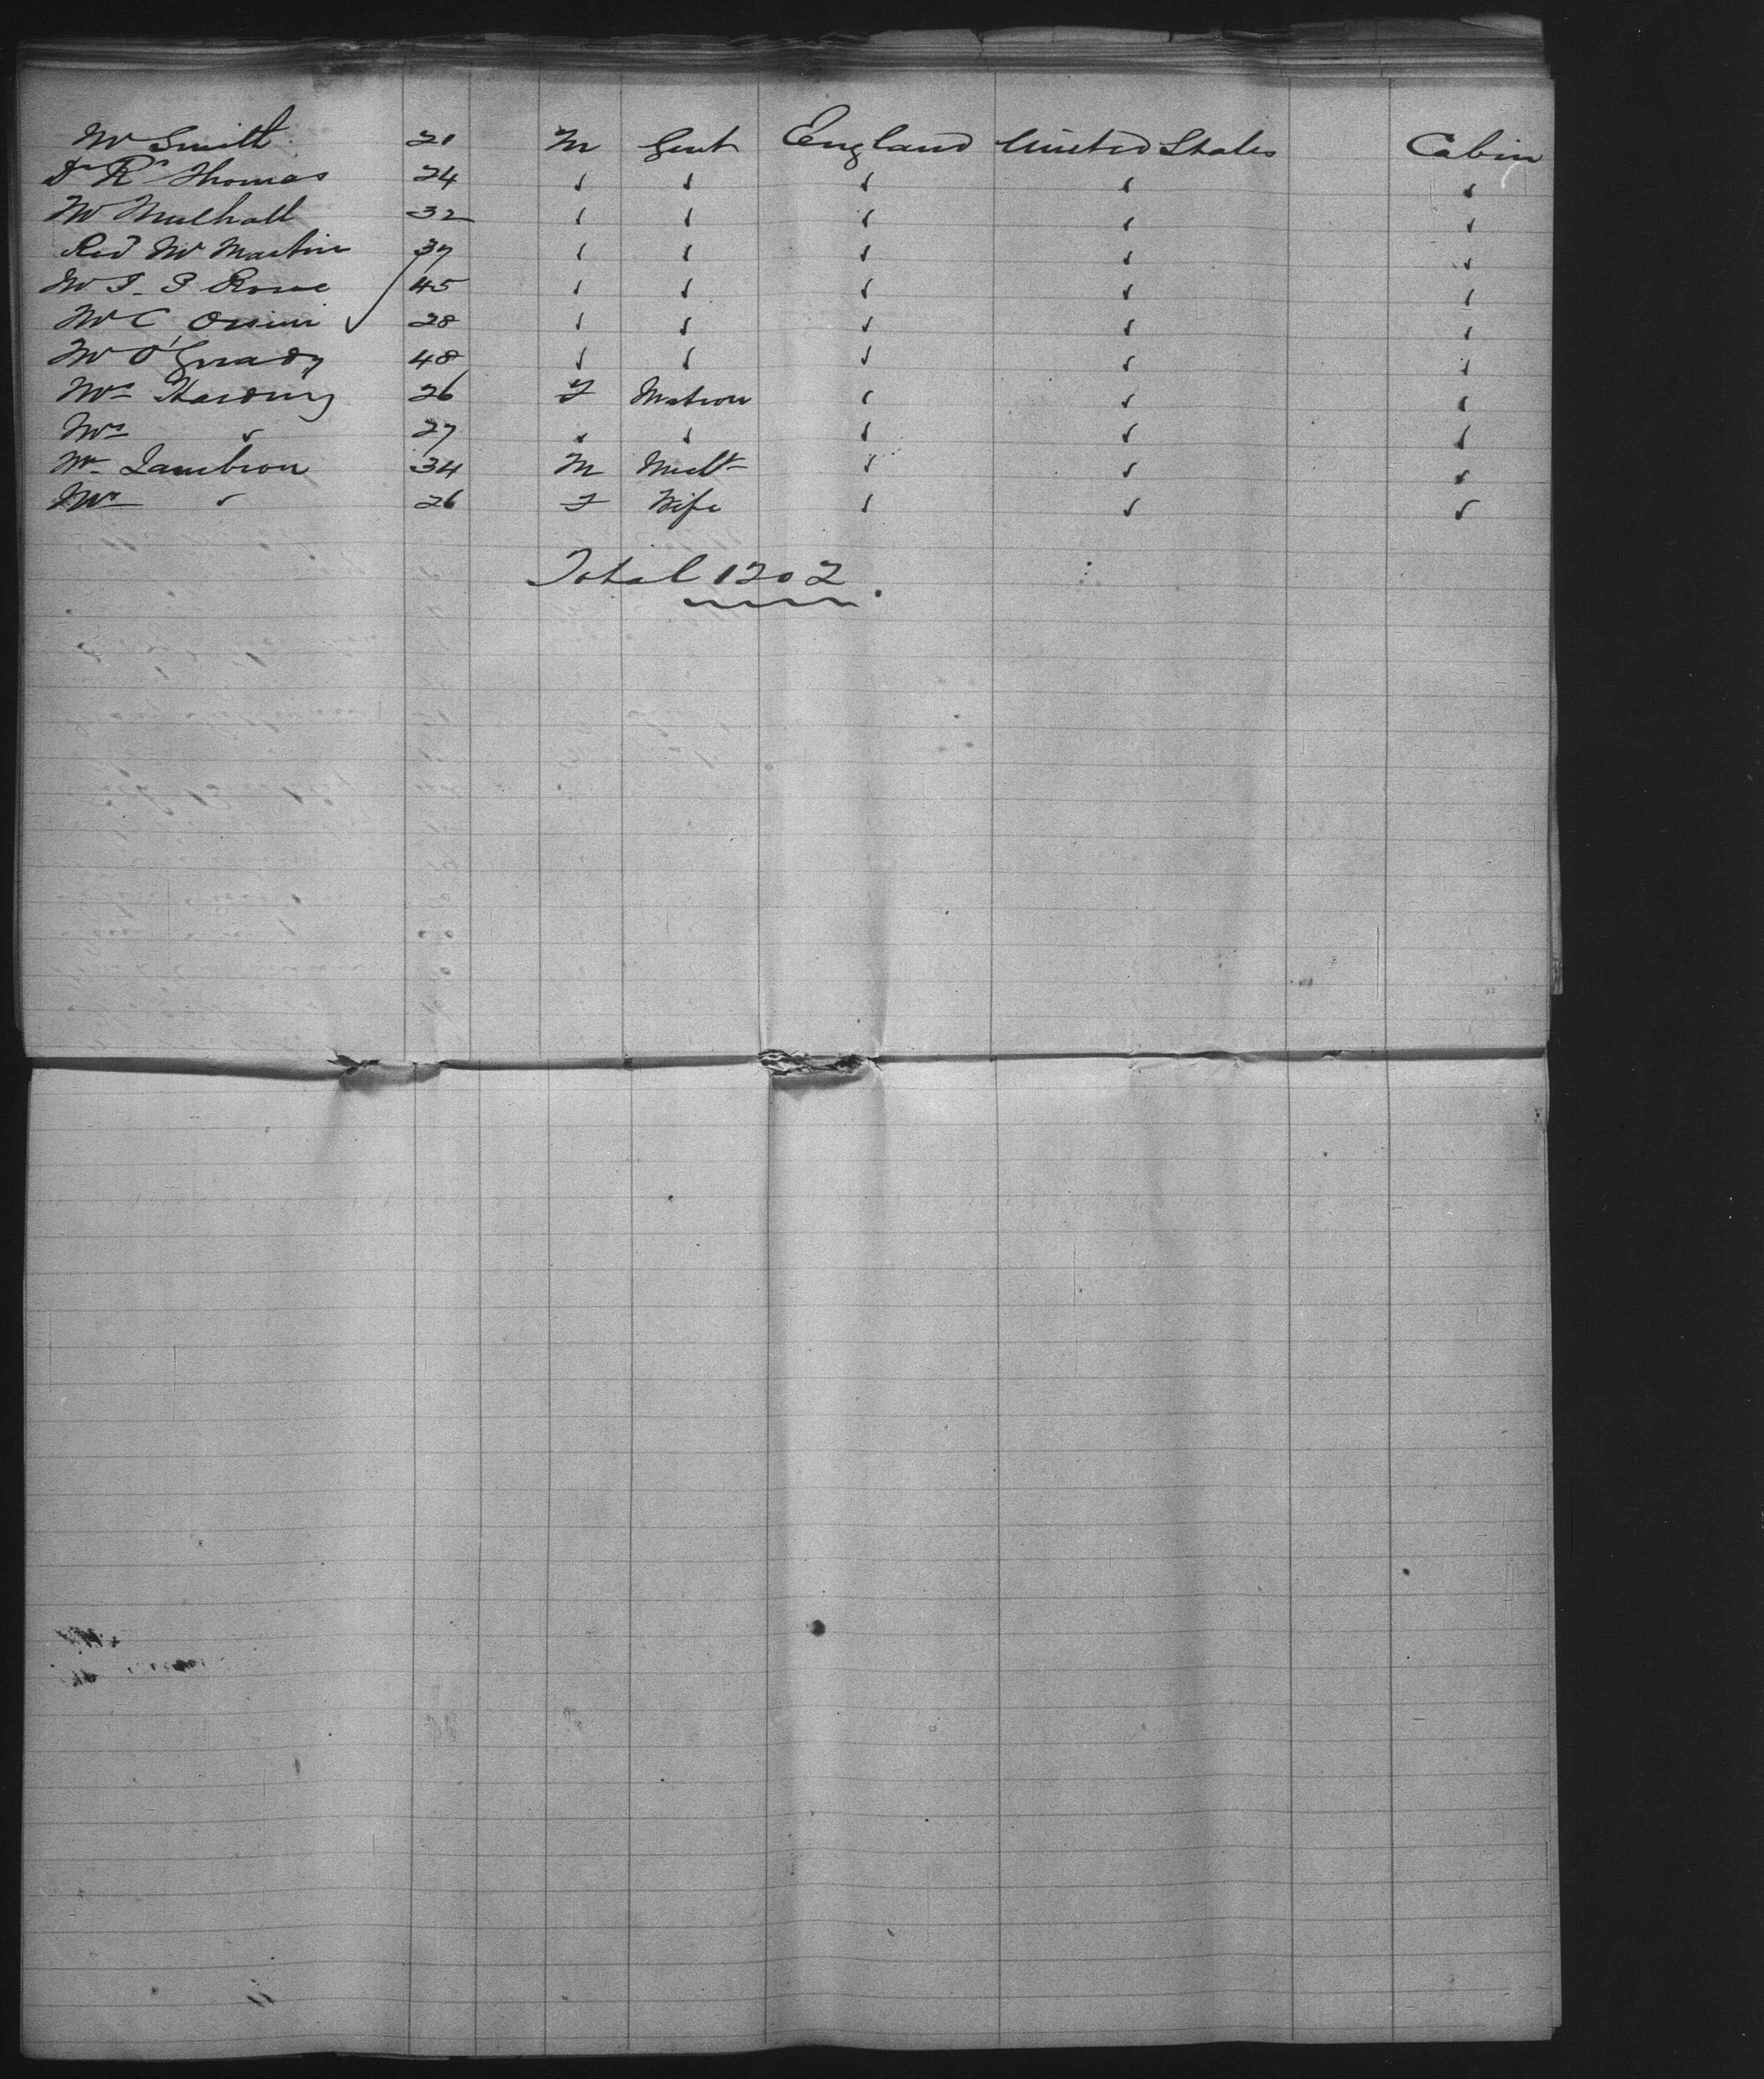 Mr Smith 21 M Gent England United States Cabin
Dr R Thomas 24 " " " " "
Mr Mulhall 32 " " " " "
Revd Mr Martin 37 " " " " "
Mr T. P. Rowe 45 " " " " "
Mr C Orsini 28 " " " " "
Mr O'Grady 48 " " " " "
Mrs Harding 26 F Matron " " "
Mrs " 27 " " " " "
Mr Lambron 34 M " " "
Mrs " 26 F Wife " " "
Total 1202.